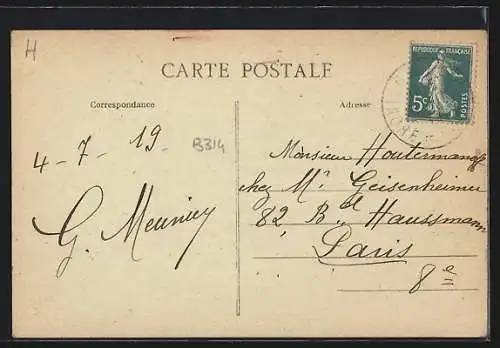 H
CARTE POSTALE
REPUBLIQUE FRANÇAISE
5c
POSTES
Correspondance
Adresse
4-7-19
B314
G. Meunier
Monsieur Houtermans
chez Mr Geisenheimer
82 Bd Haussmann
Paris
8e